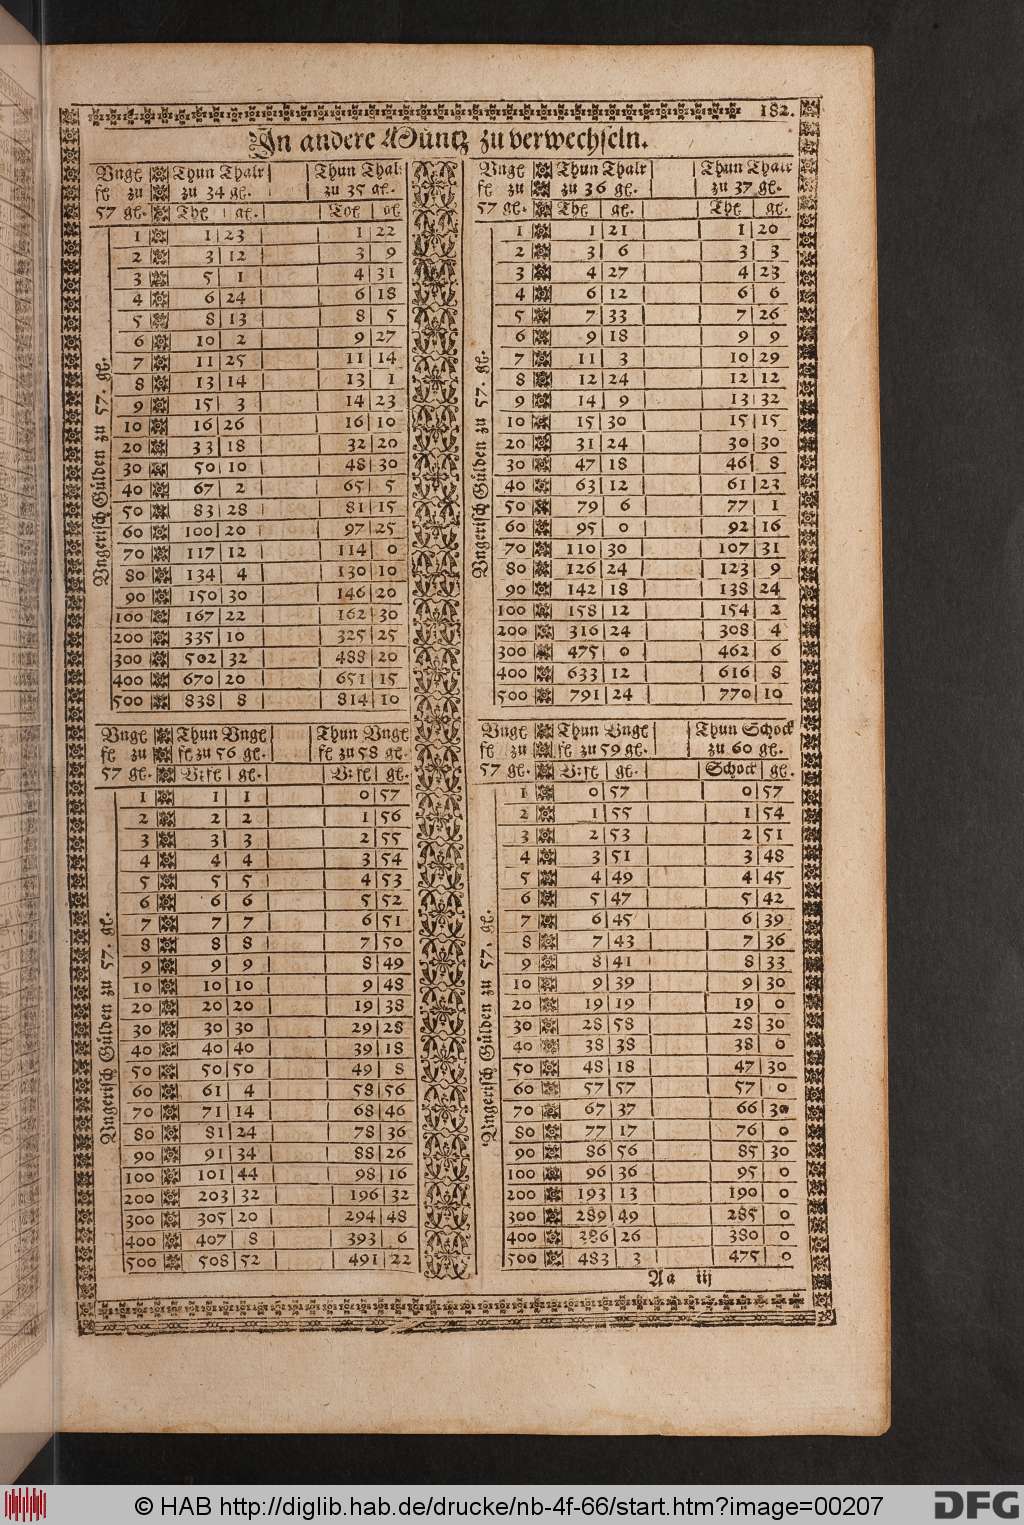 182.
In andere Müntz zu verwechseln.
Vngl Thun Thalr Thun Thal
fl zu zu 34 gl. zu 35 gl.
57 gl. Thl gl. gl
1 1 23 1 22
2 3 12 3 9
3 5 1 4 31
4 6 24 6 18
5 8 13 8 5
6 10 2 9 27
7 11 25 11 14
8 13 14 13 1
9 15 3 14 23
10 16 26 16 10
20 33 18 32 20
30 50 10 48 30
40 67 2 65 5
50 83 28 81 15
60 100 20 97 25
70 117 12 114 0
80 134 4 130 10
90 150 30 146 20
100 167 22 162 30
200 335 10 325 25
300 502 32 488 20
400 670 20 651 15
500 838 8 814 10
Vngerisch Gülden zu 57. gl.
Vngl Thun Thalr Thun Thalr
fl zu zu 36 gl. zu 37 gl.
57 gl. Thl gl. Thl gl.
1 1 21 1 20
2 3 6 3 3
3 4 27 4 23
4 6 12 6 6
5 7 33 7 26
6 9 18 9 9
7 11 3 10 29
8 12 24 12 12
9 14 9 13 32
10 15 30 15 15
20 31 24 30 30
30 47 18 46 8
40 63 12 61 23
50 79 6 77 1
60 95 0 92 16
70 110 30 107 31
80 126 24 123 9
90 142 18 138 24
100 158 12 154 2
200 316 24 308 4
300 475 0 462 6
400 633 12 616 8
500 791 24 770 10
Vngerisch Gülden zu 57. gl.
Vngl Thun Vngl Thun Vngl
fl zu fl zu 56 gl. fl zu 58 gl.
57 gl. gl. gl.
1 1 1 0 57
2 2 2 1 56
3 3 3 2 55
4 4 4 3 54
5 5 5 4 53
6 6 6 5 52
7 7 7 6 51
8 8 8 7 50
9 9 9 8 49
10 10 10 9 48
20 20 20 19 38
30 30 30 29 28
40 40 40 39 18
50 50 50 49 8
60 61 4 58 56
70 71 14 68 46
80 81 24 78 36
90 91 34 88 26
100 101 44 98 16
200 203 32 196 32
300 305 20 294 48
400 407 8 393 6
500 508 52 491 22
Vngerisch Gülden zu 57. gl.
Vngl Thun Vngl Thun Schock
fl zu fl zu 59 gl. zu 60 gl.
57 gl. gl. Schock gl.
1 0 57 0 57
2 1 55 1 54
3 2 53 2 51
4 3 51 3 48
5 4 49 4 45
6 5 47 5 42
7 6 45 6 39
8 7 43 7 36
9 8 41 8 33
10 9 39 9 30
20 19 19 19 0
30 28 58 28 30
40 38 38 38 0
50 48 18 47 30
60 57 57 57 0
70 67 37 66 30
80 77 17 76 0
90 86 56 85 30
100 96 36 95 0
200 193 13 190 0
300 289 49 285 0
400 386 26 380 0
500 483 3 475 0
Vngerisch Gülden zu 57. gl.
Aa iij
© HAB http://diglib.hab.de/drucke/nb-4f-66/start.htm?image=00207
DFG